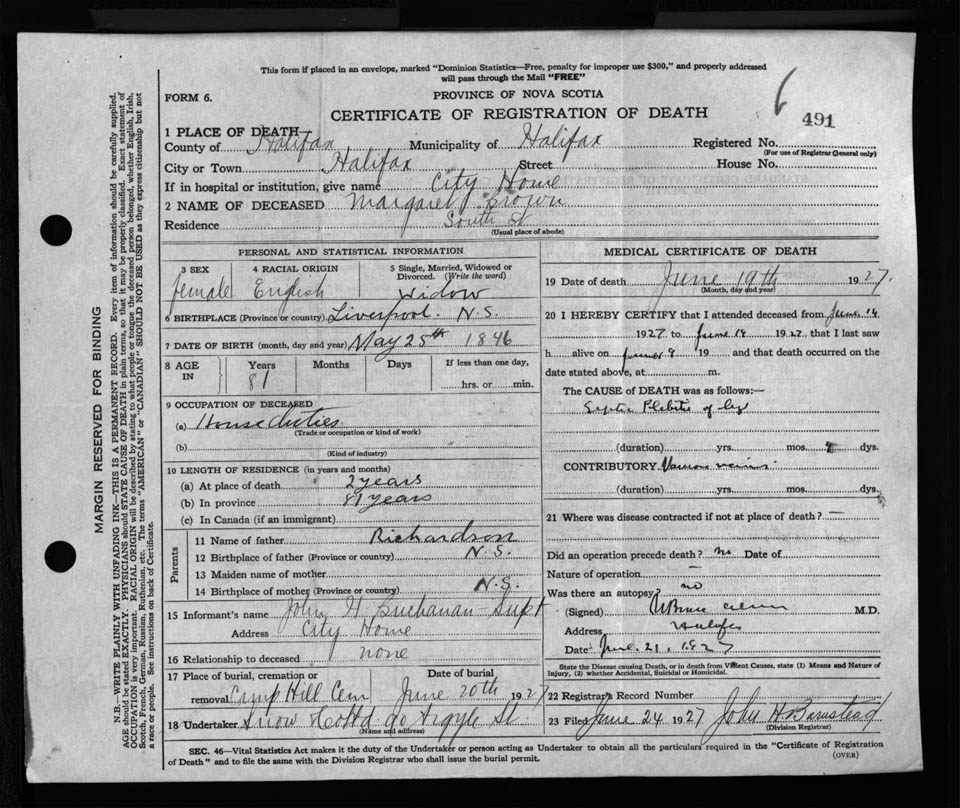 This form if placed in an envelope, marked "Dominion Statistics—Free, penalty for improper use $300," and properly addressed
will pass through the Mail "FREE"
FORM 6.
PROVINCE OF NOVA SCOTIA
CERTIFICATE OF REGISTRATION OF DEATH
6
491
1 PLACE OF DEATH
County of Halifax Municipality of Halifax Registered No.
(For use of Registrar General only)
City or Town Halifax Street House No.
If in hospital or institution, give name City Home
2 NAME OF DECEASED Margaret Brown
Residence South St
(Usual place of abode)
PERSONAL AND STATISTICAL INFORMATION
3 SEX female
4 RACIAL ORIGIN English
5 Single, Married, Widowed or Divorced. (Write the word) Widow
6 BIRTHPLACE (Province or country) Liverpool. N.S.
7 DATE OF BIRTH (month, day and year) May 25th 1846
8 AGE IN Years 81 Months Days If less than one day, hrs. or min.
9 OCCUPATION OF DECEASED
(a) House duties
(Trade or occupation or kind of work)
(b)
(Kind of industry)
10 LENGTH OF RESIDENCE (in years and months)
(a) At place of death 2 years
(b) In province 81 years
(c) In Canada (if an immigrant)
Parents
11 Name of father Richardson
12 Birthplace of father (Province or country) N.S.
13 Maiden name of mother
14 Birthplace of mother (Province or country) N.S.
15 Informant's name John H Buchanan - Supt
Address City Home
16 Relationship to deceased none
17 Place of burial, cremation or Date of burial
removal Camp Hill Cem June 20th 1927
18 Undertaker Snow & Co Ltd 90 Argyle St.
(Name and address)
MEDICAL CERTIFICATE OF DEATH
19 Date of death June 19th 1927.
(Month, day and year)
20 I HEREBY CERTIFY that I attended deceased from June 14
1927 to June 19 1927 that I last saw
h alive on June 19 and that death occurred on the
date stated above, at m.
The CAUSE of DEATH was as follows:—
Septic Phlebitis of leg
(duration) yrs. mos. dys.
CONTRIBUTORY Varicose veins
(duration) yrs. mos. dys.
21 Where was disease contracted if not at place of death? —
Did an operation precede death? no Date of
Nature of operation —
Was there an autopsy? no
(Signed) M.D.
Address Halifax
Date June 21. 1927
State the Disease causing Death, or in death from Violent Causes, state (1) Means and Nature of
Injury, (2) whether Accidental, Suicidal or Homicidal.
22 Registrar's Record Number
23 Filed June 24 1927 John H Barnstead
(Division Registrar)
SEC. 46—Vital Statistics Act makes it the duty of the Undertaker or person acting as Undertaker to obtain all the particulars required in the "Certificate of Registration
of Death" and to file the same with the Division Registrar who shall issue the burial permit. (OVER)
MARGIN RESERVED FOR BINDING
N.B.—WRITE PLAINLY WITH UNFADING INK—THIS IS A PERMANENT RECORD. Every item of information should be carefully supplied.
AGE should be stated EXACTLY. PHYSICIANS should STATE CAUSE OF DEATH in plain terms, so that it may be properly classified. Exact statement of
OCCUPATION is very important. RACIAL ORIGIN will be described by stating to what people or tongue the deceased person belonged, whether English, Irish,
Scotch, French, German, Russian, Ruthenian, etc. The terms "AMERICAN" or "CANADIAN" SHOULD NOT BE USED as they express citizenship but not
a race or people. See instructions on back of Certificate.